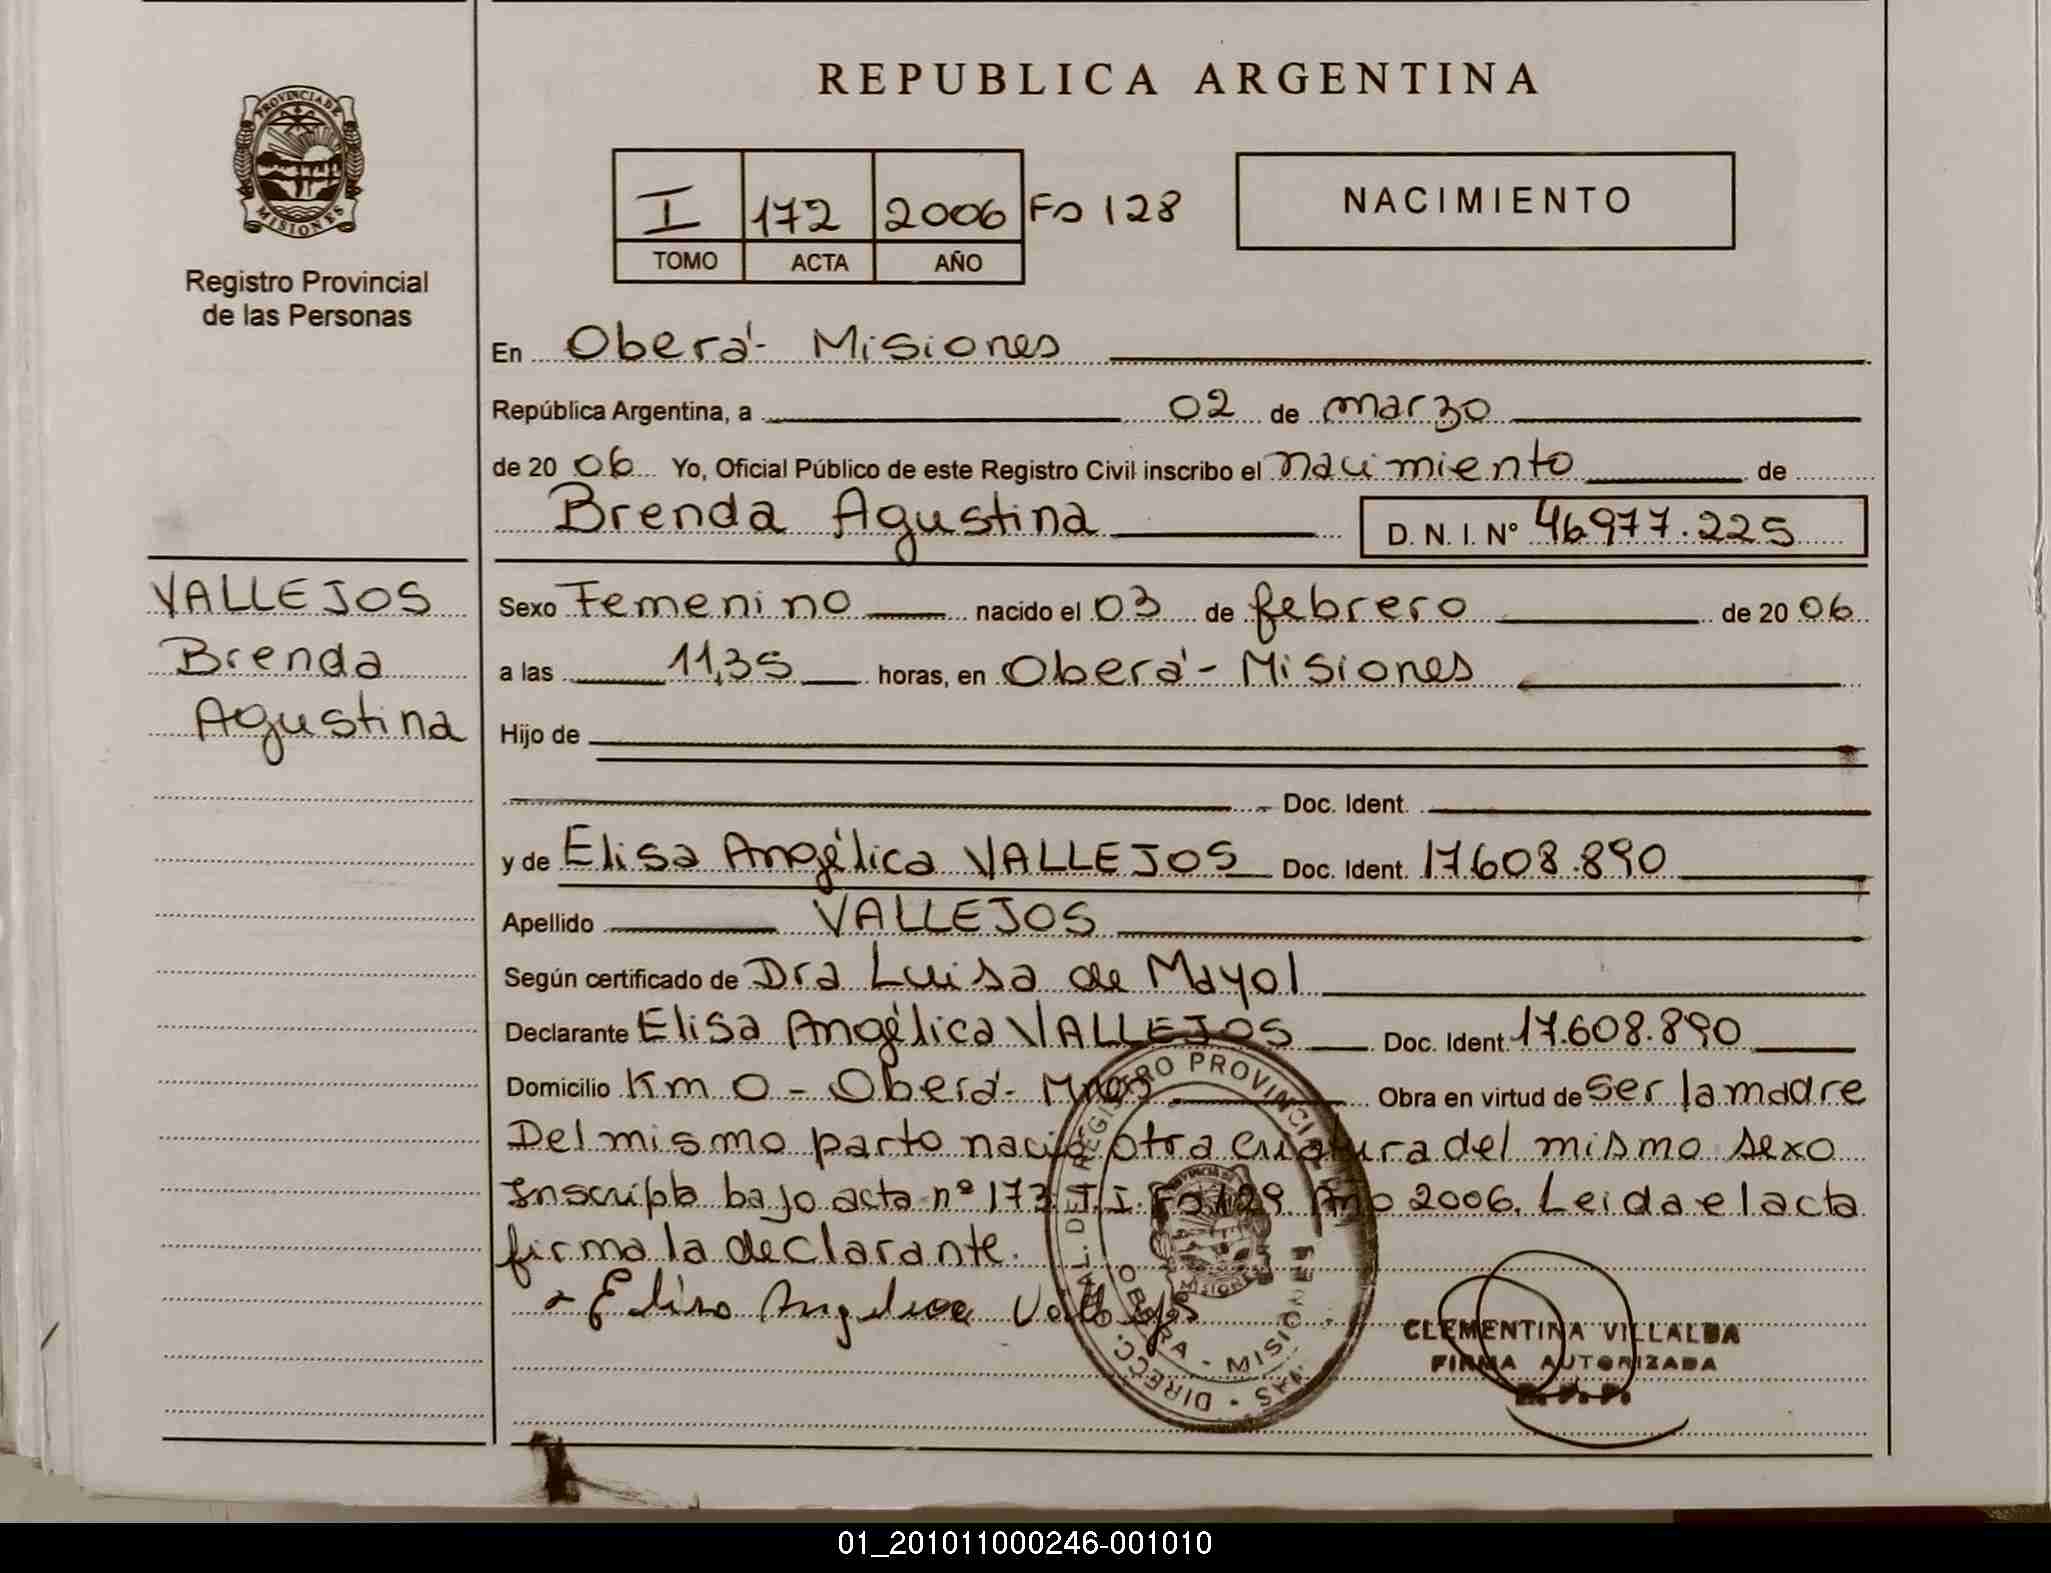 REPUBLICA ARGENTINA
PROVINCIA DE
MISIONES
Registro Provincial
de las Personas
I 172 2006 Fo 128
TOMO ACTA AÑO
NACIMIENTO
En Oberá - Misiones
República Argentina, a 02 de marzo
de 20 06 Yo, Oficial Público de este Registro Civil inscribo el nacimiento de
Brenda Agustina D. N. I. Nº 46977.225
VALLEJOS
Brenda
Agustina
Sexo Femenino nacido el 03 de febrero de 20 06
a las 11,35 horas, en Oberá - Misiones
Hijo de
Doc. Ident.
y de Elisa Angélica VALLEJOS Doc. Ident. 17.608.890
Apellido VALLEJOS
Según certificado de Dra Luisa de Mayol
Declarante Elisa Angélica VALLEJOS Doc. Ident. 17.608.890
Domicilio Km 0 - Oberá - Mnes Obra en virtud de ser la madre
Del mismo parto nació otra criatura del mismo sexo
Inscripta bajo acta nº 173 T.I. Fo 129 Año 2006. Leida el acta
firma la declarante.
Elisa Angelica Vallejos
DIRECC. GRAL. DEL REGISTRO PROVINCIAL
OBERA - MISIONES
CLEMENTINA VILLALBA
FIRMA AUTORIZADA
R. P. P.
01_201011000246-001010